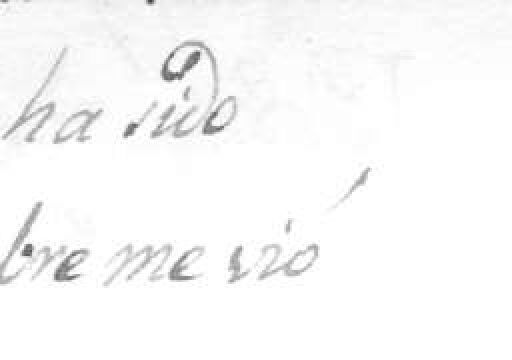 ha sido
bre me vió